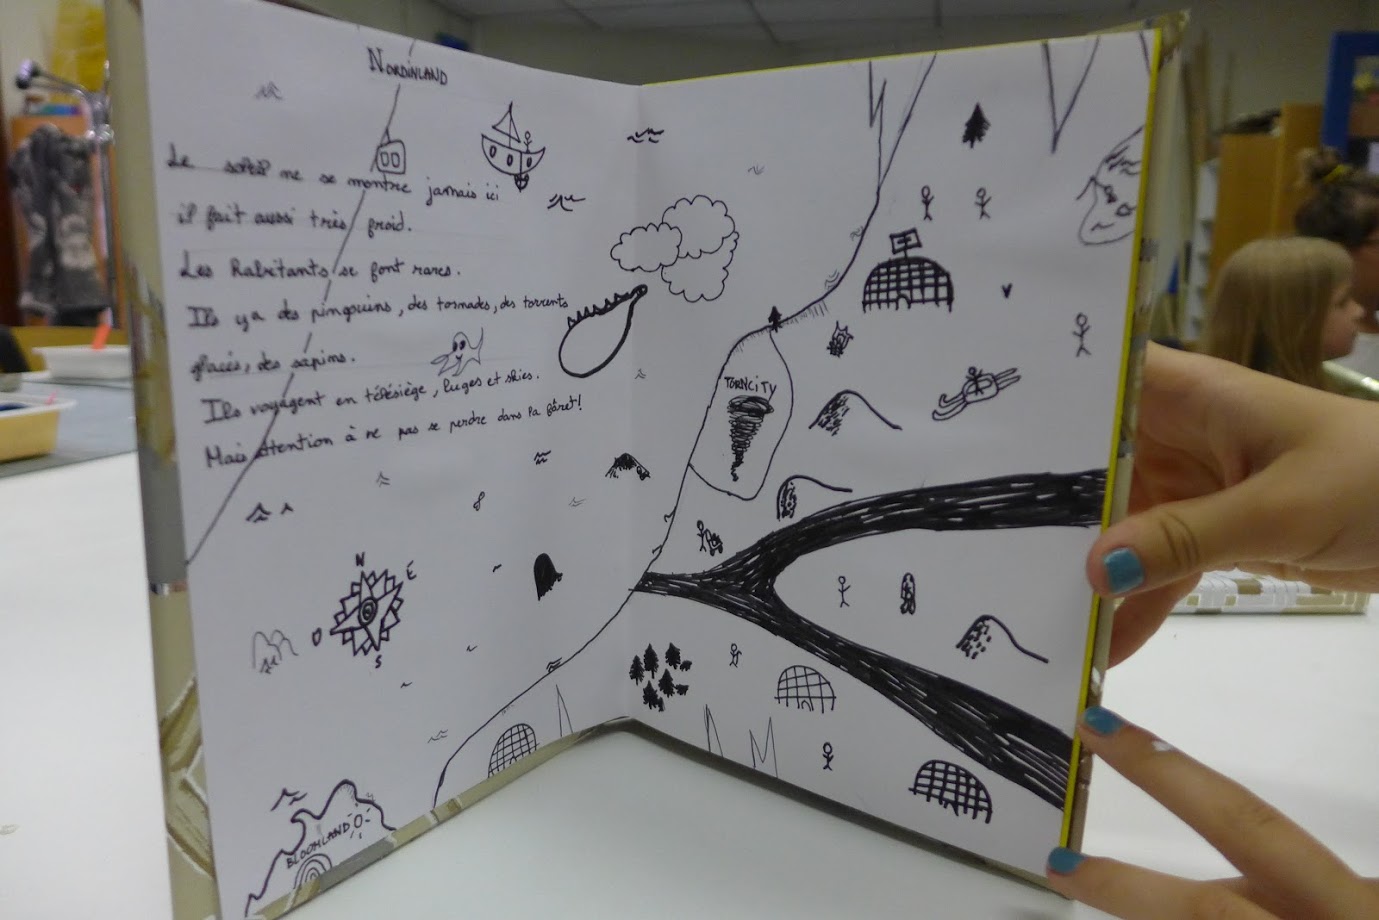 NORDINLAND
Le soleil ne se montre jamais ici
il fait aussi très froid.
Les habitants se font rares.
Ils y a des pingouins, des tornades, des torrents
glacés, des sapins.
Ils voyagent en télésiège, luges et skies.
Mais attention à ne pas se perdre dans la fôret!
TORNCITY
N
E
O
S
BLOOMLAND